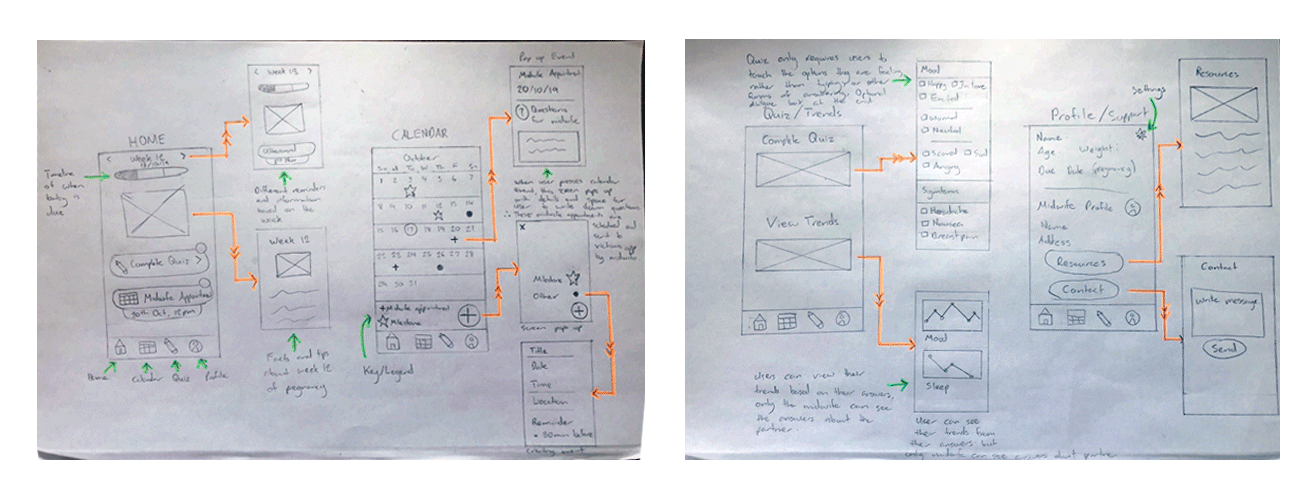 HOME
< Week 12 >
Timeline
of when
baby is
due
Complete Quiz >
Midwife Appointment
30th Oct, 12pm
Home
Calendar
Quiz
Profile
< Week 13 >
Ultrasound
Different reminders
and information
based on the
week
Week 12
Facts and tips
about week 12
of pregnancy
CALENDAR
October
Su M Tu W Th F Sa
1 2 3 4 5 6 7
8 9 10 11 12 13 14
15 16 17 18 19 20 21
22 23 24 25 26 27 28
29 30 31
+ Midwife appointment
Milestone
Key/Legend
Pop up Event
Midwife Appointment
20/10/19
Questions
for midwife
When user presses calendar
event, the screen pops up
with details and space for
user to write down questions
∴ These midwife appointments are
scheduled and
sent to
victims app
by midwife
X
Milestone
Other
Screen pop up
Title
Date
Time
Location
Reminder
• 30min before
Creating event
Quiz only requires users to
touch the options they are feeling
rather than typing or other
forms of answering. Optional
dialogue box at the end
Quiz/Trends
Complete Quiz
View Trends
Users can view their
trends based on their answers,
only the midwife can see
the answers about the
partner.
Mood
Happy In love
Excited
Normal
Neutral
Scared Sad
Angry
Symptoms
Headache
Nausea
Breast pain
Mood
Sleep
User can see
their trends from
their answers but
only midwife can see answers about partner
Profile/Support
Settings
Name
Age Weight:
Due Date (pregnancy)
Midwife Profile
Name
Address
Resources
Contact
Resources
Contact
Write message
Send